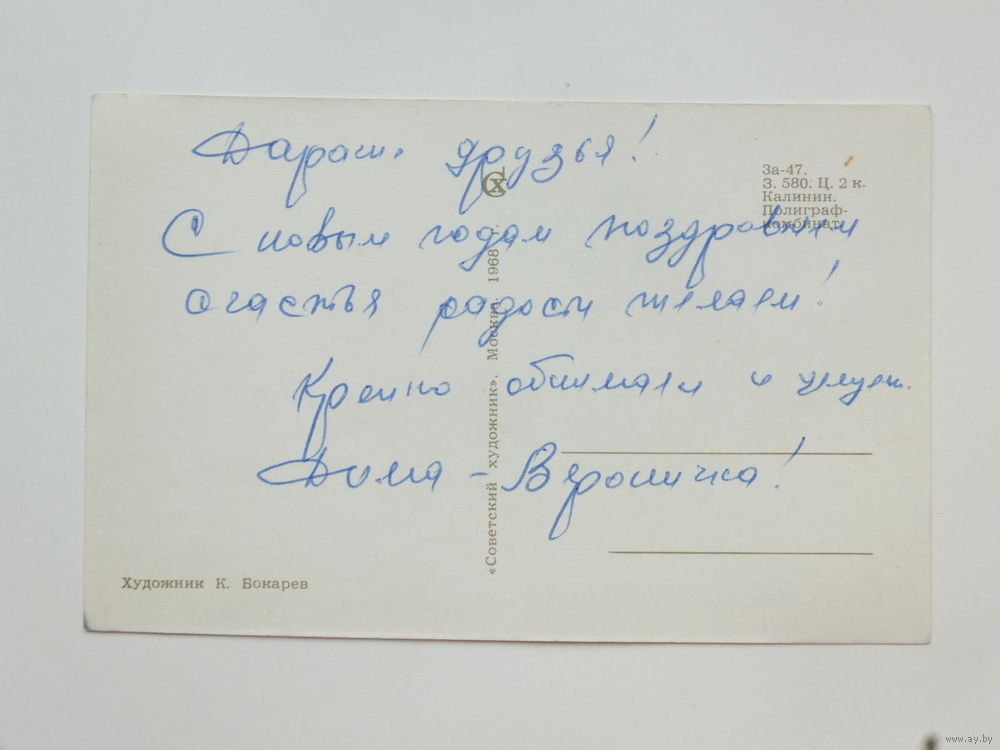 Дараги. друзья!
С новым годам поздровляем
счастья радости желаем!
Крепко обнимаем и целуем.
Дима - Вероничка!
За-47.
З. 580. Ц. 2 к.
Калинин.
Полиграф-
комбинат.
«Советский художник». Москва. 1968 г.
СХ
Художник К. Бокарев
www.ay.by